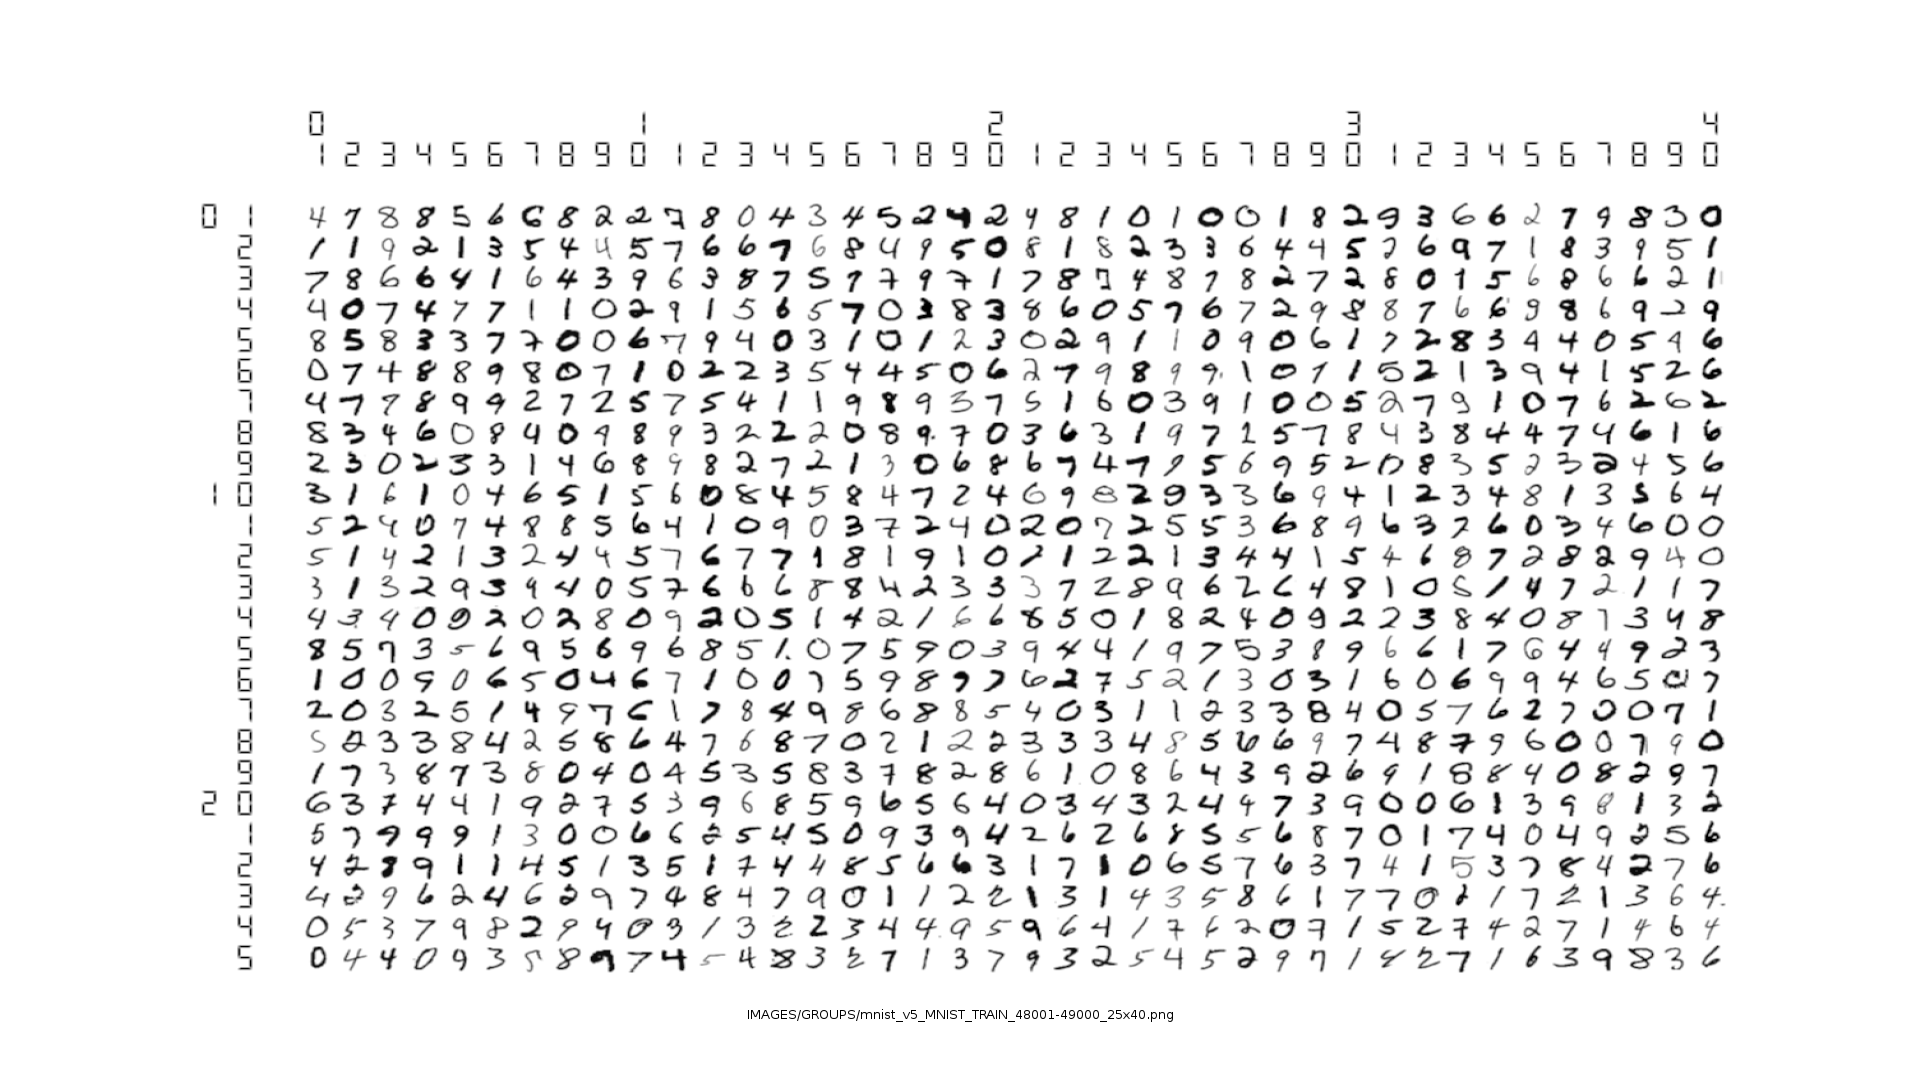 0 1 2 3 4
1 2 3 4 5 6 7 8 9 0 1 2 3 4 5 6 7 8 9 0 1 2 3 4 5 6 7 8 9 0 1 2 3 4 5 6 7 8 9 0
0 1 4 7 8 8 5 6 6 8 2 2 7 8 0 4 3 4 5 2 4 2 4 8 1 0 1 0 0 1 8 2 9 3 6 6 2 7 9 8 3 0
2 1 1 9 2 1 3 5 4 4 5 7 6 6 7 6 8 4 9 5 0 8 1 8 2 3 3 6 4 4 5 2 6 9 7 1 8 3 9 5 1
3 7 8 6 6 4 1 6 4 3 9 6 3 8 7 5 7 7 9 7 1 7 8 7 4 8 7 8 2 7 2 8 0 1 5 6 8 6 6 2 1
4 4 0 7 4 7 7 1 1 0 2 9 1 5 6 5 7 0 3 8 3 8 6 0 5 7 6 7 2 9 8 8 7 6 6 9 8 6 9 2 9
5 8 5 8 3 3 7 7 0 0 6 7 9 4 0 3 1 0 1 2 3 0 2 9 1 1 0 9 0 6 1 7 2 8 3 4 4 0 5 4 6
6 0 7 4 8 8 9 8 0 7 1 0 2 2 3 5 4 4 5 0 6 2 7 9 8 9 9 1 0 7 1 5 2 1 3 9 4 1 5 2 6
7 4 7 7 8 9 9 2 7 2 5 7 5 4 1 1 9 8 9 3 7 5 1 6 0 3 9 1 0 0 5 2 7 9 1 0 7 6 2 6 2
8 8 3 4 6 0 8 4 0 9 8 9 3 2 2 2 0 8 9 7 0 3 6 3 1 9 7 1 5 7 8 4 3 8 4 4 7 4 6 1 6
9 2 3 0 2 3 3 1 4 6 8 9 8 2 7 2 1 3 0 6 8 6 7 4 7 9 5 6 9 5 2 0 8 3 5 2 3 2 4 5 6
1 0 3 1 6 1 0 4 6 5 1 5 6 0 8 4 5 8 4 7 2 4 6 9 8 2 9 3 3 6 9 4 1 2 3 4 8 1 3 5 6 4
1 5 2 4 0 7 4 8 8 5 6 4 1 0 9 0 3 7 2 4 0 2 0 7 2 5 5 3 6 8 9 6 3 7 6 0 3 4 6 0 0
2 5 1 4 2 1 3 2 4 4 5 7 6 7 7 1 8 1 9 1 0 1 1 2 2 1 3 4 4 1 5 4 6 8 7 2 8 2 9 4 0
3 3 1 3 2 9 3 9 4 0 5 7 6 6 6 8 8 4 2 3 3 3 7 2 8 9 6 2 6 4 8 1 0 5 1 4 7 2 1 1 7
4 4 3 9 0 9 2 0 2 8 0 9 2 0 5 1 4 2 1 6 6 8 5 0 1 8 2 4 0 9 2 2 3 8 4 0 8 7 3 4 8
5 8 5 7 3 5 6 9 5 6 9 6 8 5 1 0 7 5 9 0 3 9 4 4 1 9 7 5 3 8 9 6 6 1 7 6 4 4 9 2 3
6 1 0 0 9 0 6 5 0 4 6 7 1 0 0 7 5 9 8 9 7 6 2 7 5 2 1 3 0 3 1 6 0 6 9 9 4 6 5 0 7
7 2 0 3 2 5 1 4 9 7 6 1 7 8 4 9 8 6 8 8 5 4 0 3 1 1 2 3 3 8 4 0 5 7 6 2 7 0 0 7 1
8 5 2 3 3 8 4 2 5 8 6 4 7 6 8 7 0 2 1 2 2 3 3 3 4 8 5 6 6 9 7 4 8 7 9 6 0 0 7 9 0
9 1 7 3 8 7 3 8 0 4 0 4 5 3 5 8 3 7 8 2 8 6 1 0 8 6 4 3 9 2 6 9 1 8 8 4 0 8 2 9 7
2 0 6 3 7 4 4 1 9 2 7 5 3 9 6 8 5 9 6 5 6 4 0 3 4 3 2 4 4 7 3 9 0 0 6 1 3 9 8 1 3 2
1 5 7 9 9 9 1 3 0 0 6 6 2 5 4 5 0 9 3 9 4 2 6 2 6 8 5 5 6 8 7 0 1 7 4 0 4 9 2 5 6
2 4 2 8 9 1 1 4 5 1 3 5 1 7 4 4 8 5 6 6 3 1 7 1 0 6 5 7 6 3 7 4 1 5 3 7 8 4 2 7 6
3 4 2 9 6 2 4 6 2 9 7 4 8 4 7 9 0 1 1 2 2 1 3 1 4 3 5 8 6 1 7 7 0 2 1 7 2 1 3 6 4
4 0 5 3 7 9 8 2 9 4 0 3 1 3 2 2 3 4 4 9 5 9 6 4 1 7 6 2 0 7 1 5 2 7 4 2 7 1 4 6 4
5 0 4 4 0 9 3 5 8 9 7 4 5 4 8 3 2 7 1 3 7 9 3 2 5 4 5 2 9 7 1 8 2 7 1 6 3 9 8 3 6
IMAGES/GROUPS/mnist_v5_MNIST_TRAIN_48001-49000_25x40.png